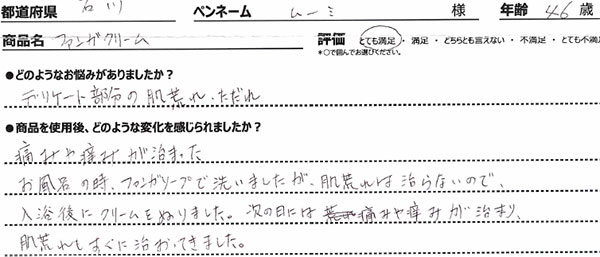 都道府県 石川 ペンネーム ムーミ 様 年齢 46 歳
商品名 ファンガクリーム 評価 とても満足・満足・どちらとも言えない・不満足・とても不満
*○で囲んでお選びください。
●どのようなお悩みがありましたか？
デリケート部分の肌荒れ、ただれ
●商品を使用後、どのような変化を感じられましたか？
痛みや痒みが治まった
お風呂の時、ファンガソープで洗いましたが、肌荒れは治らないので、
入浴後にクリームをぬりました。次の日には 痛みや痒みが治まり、
肌荒れもすぐに治おてきました。